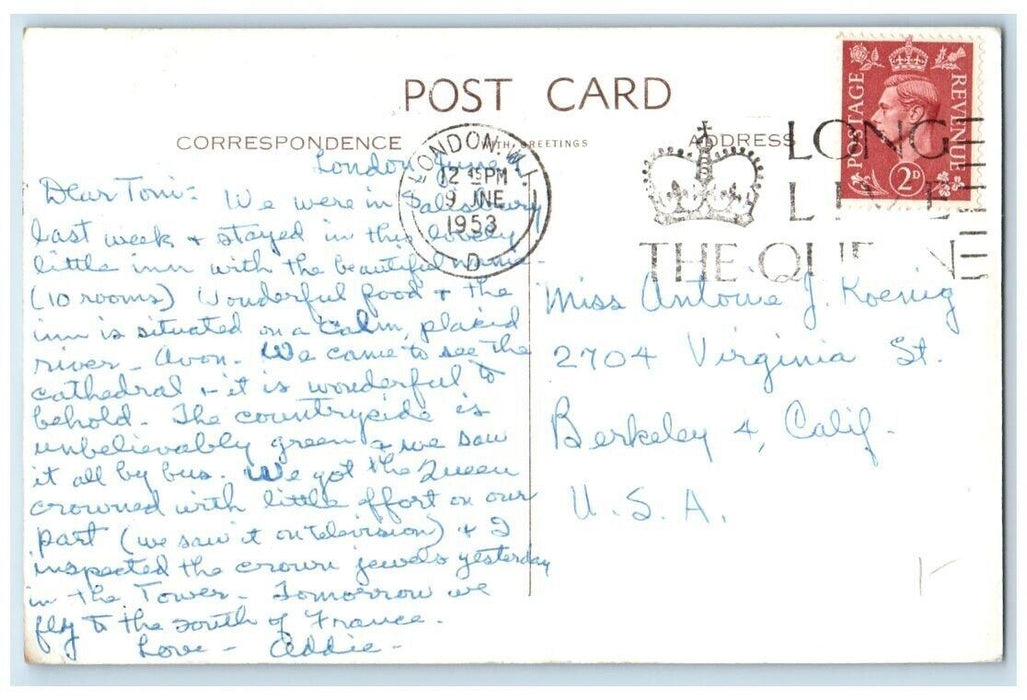 POST CARD
CORRESPONDENCE WITH GREETINGS ADDRESS
POSTAGE REVENUE
2D
LONDON. W.1.
12 45 PM
9 JNE
1953
D
LONG
LIVE
THE QUEEN
London, June
Dear Toni: We were in Salisbury
last week + stayed in this lovely
little inn with the beautiful name -
(10 rooms) Wonderful food + the
inn is situated on a calm, placid
river - Avon. We came to see the
cathedral + it is wonderful to
behold. The countryside is
unbelievably green + we saw
it all by bus. We got the Queen
crowned with little effort on our
part (we saw it on television) + I
inspected the crown jewels yesterday
in the Tower. Tomorrow we
fly to the south of France.
Love - Addie -
Miss Antonie J. Koenig
2704 Virginia St.
Berkeley 4, Calif.
U. S. A.